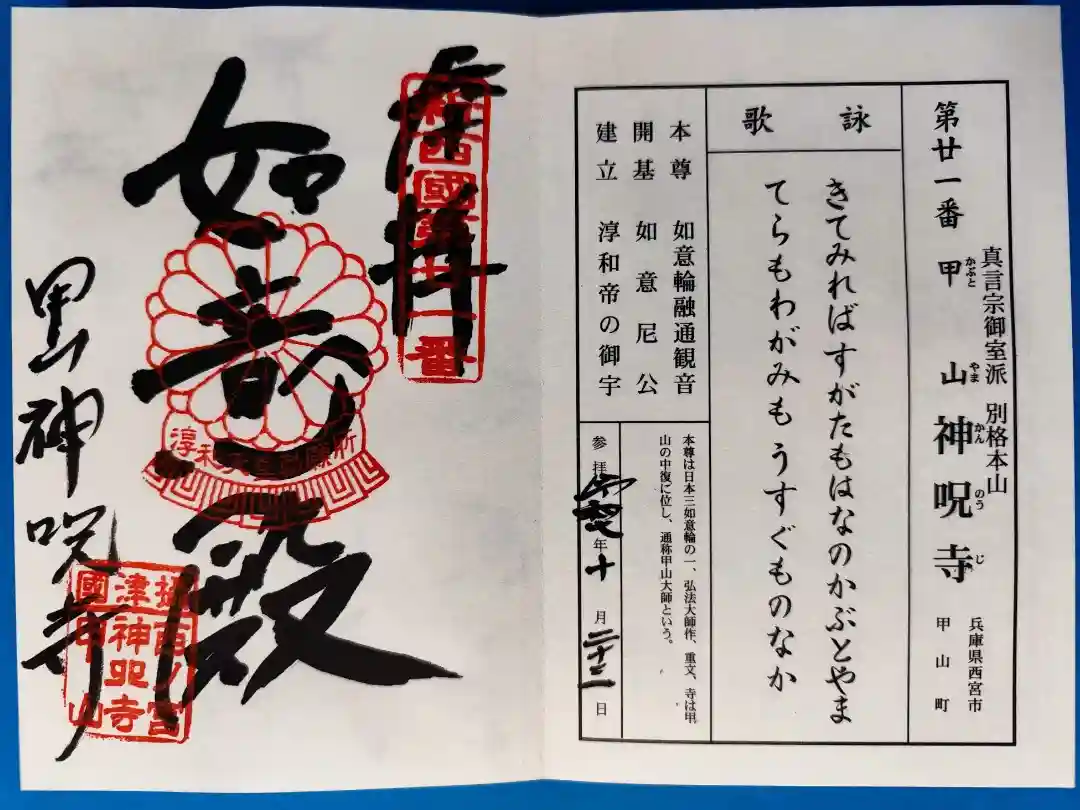 第廿一番
真言宗御室派 別格本山
甲山 神呪寺
かぶと やま かん のう じ
兵庫県西宮市
甲山町
詠歌
きてみればすがたもはなのかぶとやま
てらもわがみもうすぐものなか
本尊 如意輪融通観音
開基 如意尼公
建立 淳和帝の御宇
本尊は日本三如意輪の一、弘法大師作、重文、寺は甲
山の中復に位し、通称甲山大師という。
参拝 令和元年十月二十二日
奉拝
新西國第廿一番
如意殿
甲山神呪寺
摂西ノ宮
津神呪寺
國甲山